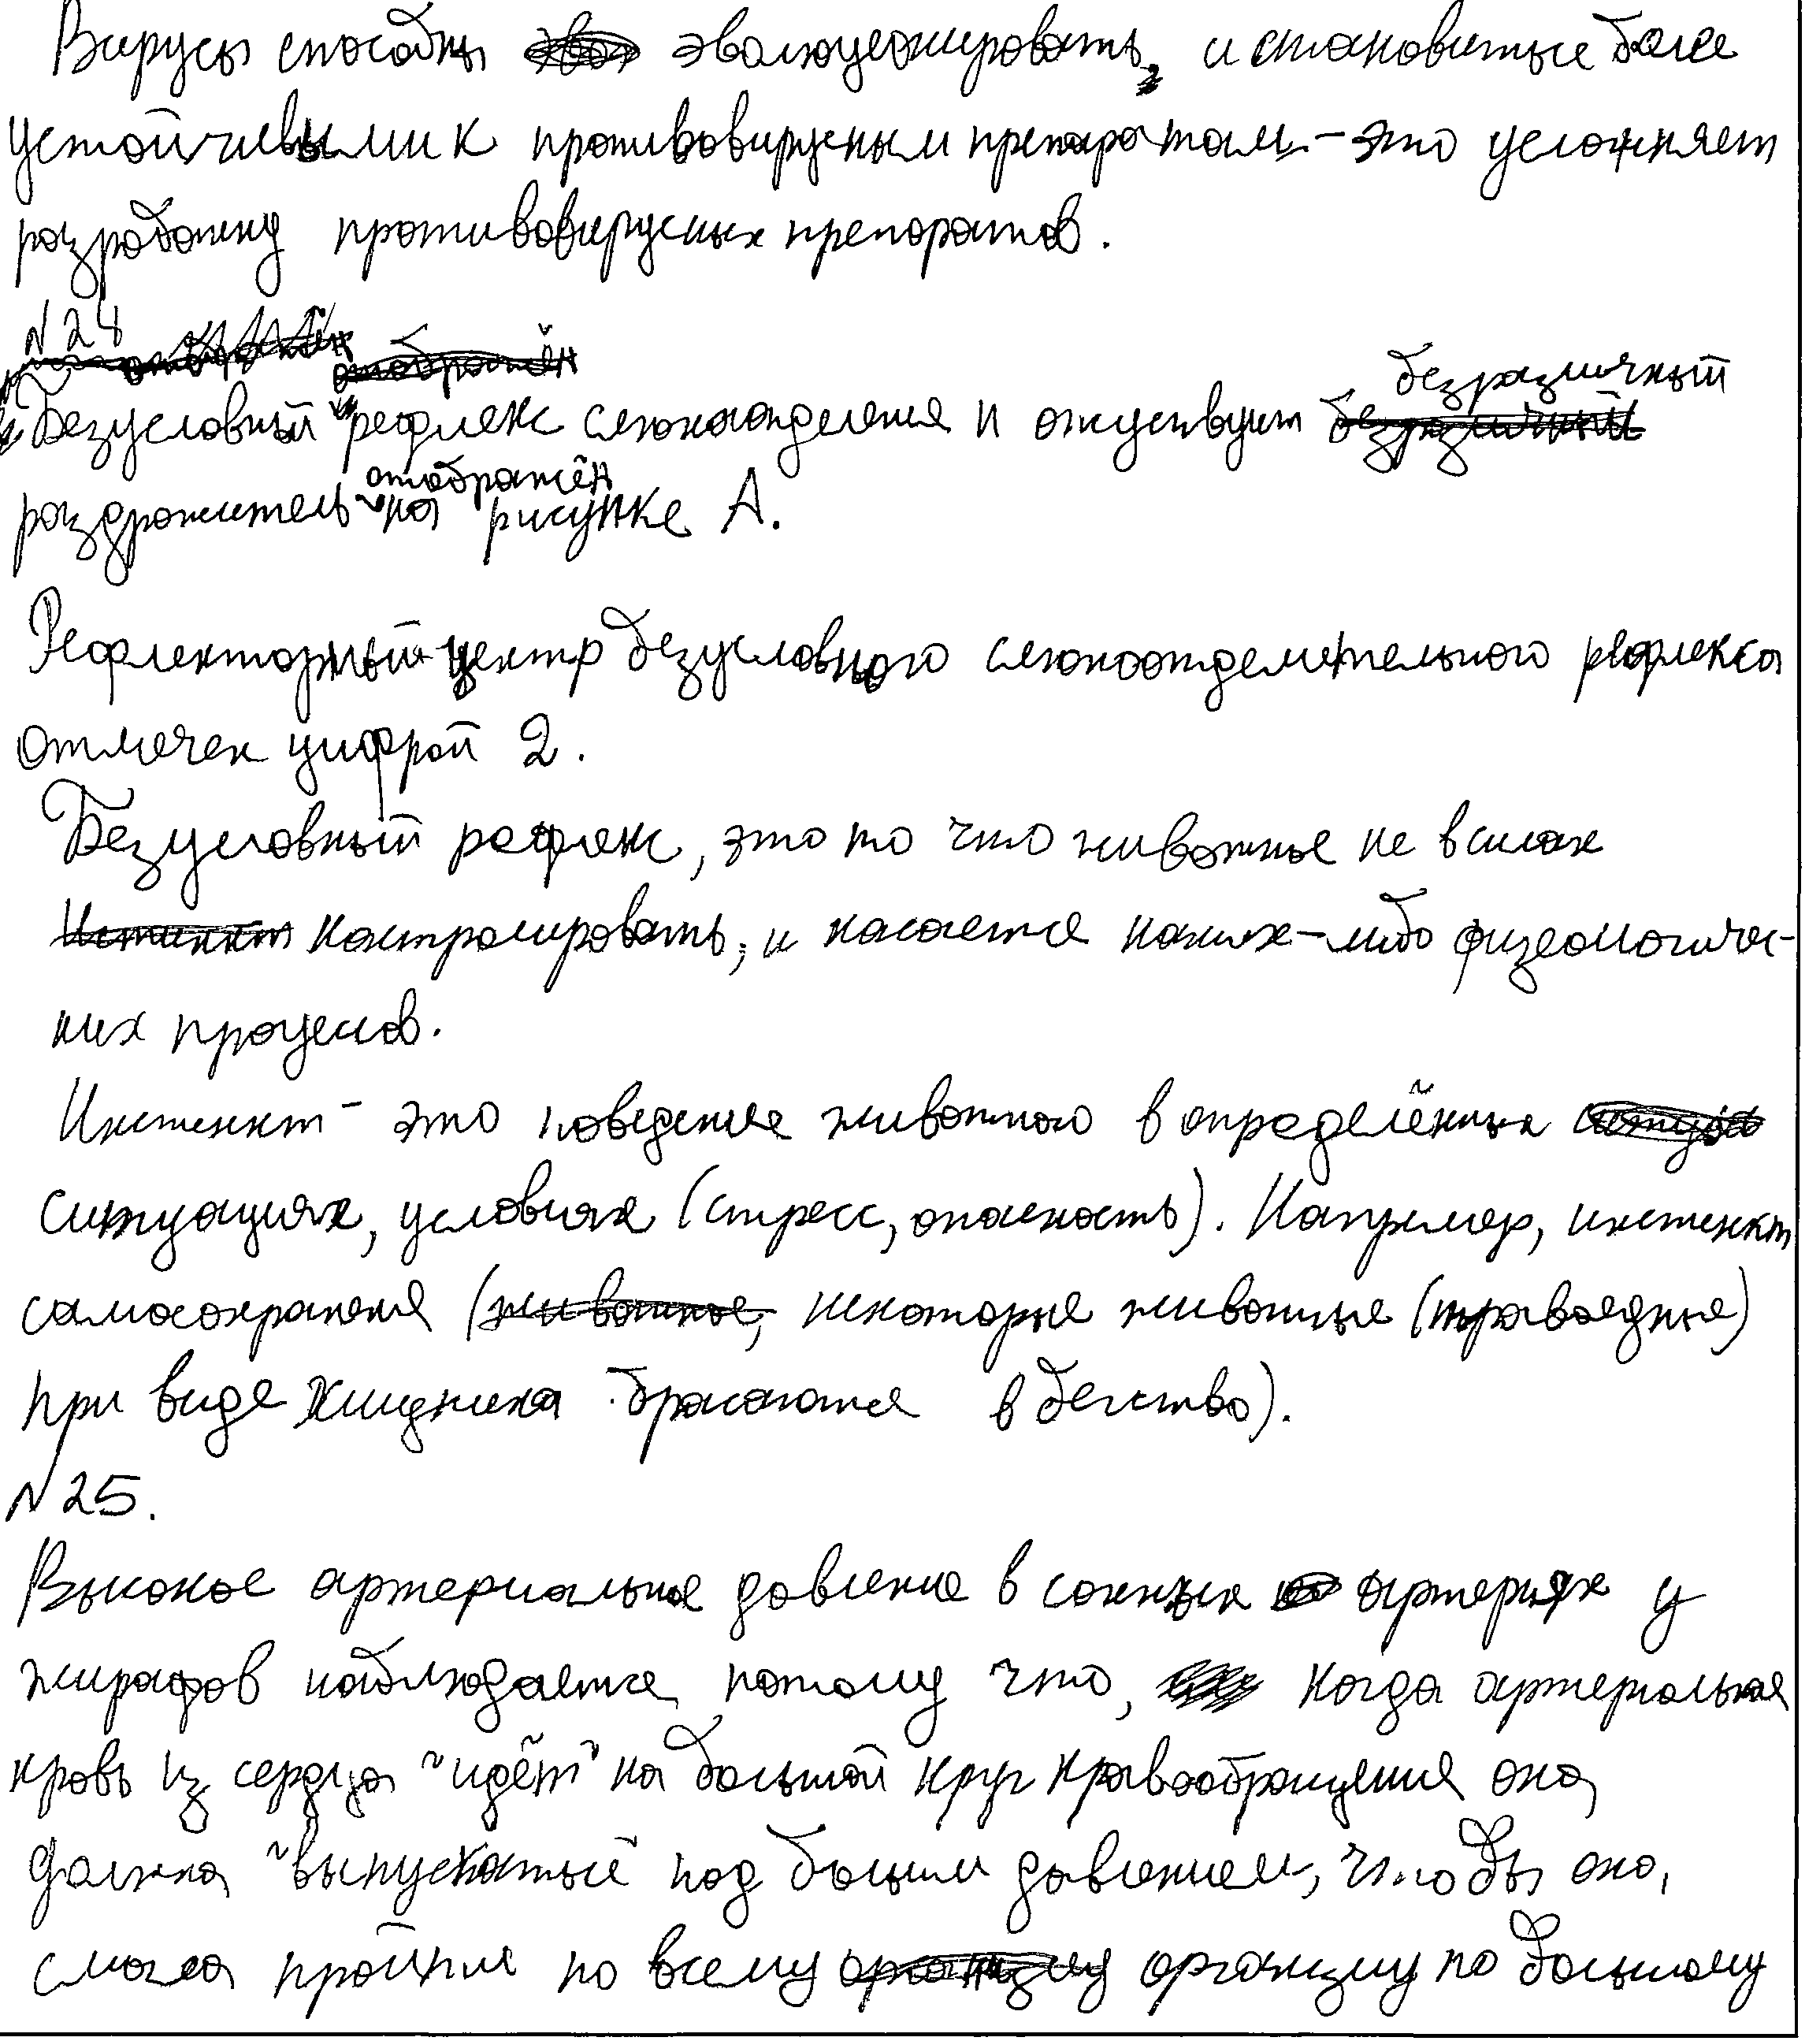 Вирусы способны эволюционировать, и становиться более
устойчивыми к противовирусным препаратам - это усложняет
разработку противовирусных препаратов.
N 24
безразличный
Безусловный рефлекс слюноотделения и отсуствует
отображён
раздражитель на рисунке А.
Рефлекторный центр безусловного слюноотделительного рефлекса
отмечен цифрой 2.
Безусловный рефлекс, это то что животные не в силах
контролировать, и касается каких-либо физеологичес-
ких процесов.
Инстинкт - это поведение животного в определённых
ситуациях, условиях (стресс, опасность). Например, инстинкт
самосохранения (некоторые животные (травоедные)
при виде хищника бросаются в бегство).
N 25.
Высокое артериальное давление в сонных артериях у
жирафов наблюдается потому что, когда артериальная
кровь из сердца "идёт" на большой круг кровообращения она
должна "выпускаться" под большим давлением, чтобы она
смогла пройти по всему организму по большому